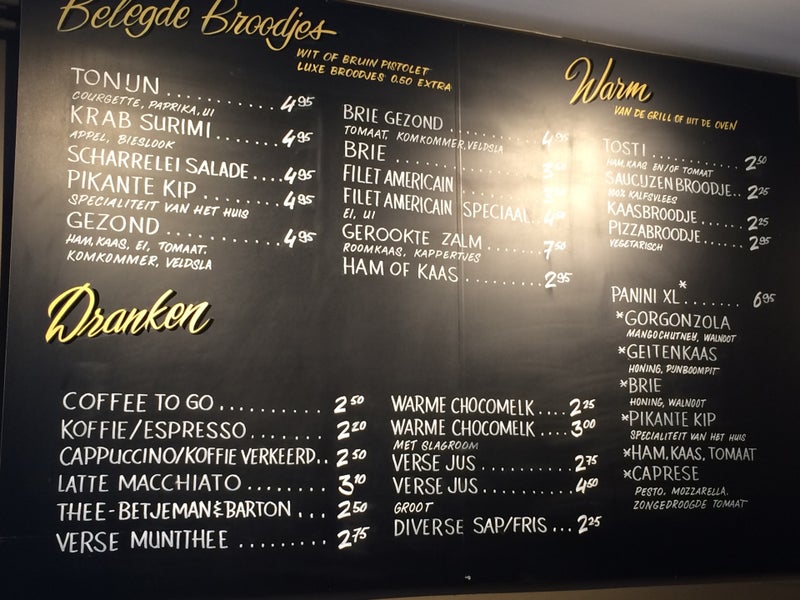 Belegde Broodjes
WIT OF BRUIN PISTOLET
LUXE BROODJES 0.60 EXTRA
TONIJN .......... 4.95
COURGETTE, PAPRIKA, UI
KRAB SURIMI ...... 4.95
APPEL, BIESLOOK
SCHARRELEI SALADE .... 4.95
PIKANTE KIP ........ 4.95
SPECIALITEIT VAN HET HUIS
GEZOND ........... 4.95
HAM, KAAS, EI, TOMAAT,
KOMKOMMER, VELDSLA
BRIE GEZOND ......... 4.95
TOMAAT, KOMKOMMER, VELDSLA
BRIE
FILET AMERICAIN
FILET AMERICAIN SPECIAAL
EI, UI
GEROOKTE ZALM ...... 7.50
ROOMKAAS, KAPPERTJES
HAM OF KAAS ........ 2.95
Warm
VAN DE GRILL OF UIT DE OVEN
TOSTI ............ 2.50
HAM, KAAS EN/OF TOMAAT
SAUCIJZENBROODJE .. 2.25
100% KALFSVLEES
KAASBROODJE ...... 2.25
PIZZABROODJE ..... 2.95
VEGETARISCH
PANINI XL* ....... 6.95
*GORGONZOLA
MANGOCHUTNEY, WALNOOT
*GEITENKAAS
HONING, PIJNBOOMPIT
*BRIE
HONING, WALNOOT
*PIKANTE KIP
SPECIALITEIT VAN HET HUIS
*HAM, KAAS, TOMAAT
*CAPRESE
PESTO, MOZZARELLA,
ZONGEDROOGDE TOMAAT
Dranken
COFFEE TO GO .......... 2.50
KOFFIE/ESPRESSO ....... 2.20
CAPPUCCINO/KOFFIE VERKEERD .. 2.50
LATTE MACCHIATO ....... 3.10
THEE-BETJEMAN & BARTON ... 2.50
VERSE MUNTTHEE ........ 2.75
WARME CHOCOMELK .... 2.25
WARME CHOCOMELK .... 3.00
MET SLAGROOM
VERSE JUS ......... 2.75
VERSE JUS ......... 4.50
GROOT
DIVERSE SAP/FRIS ... 2.25